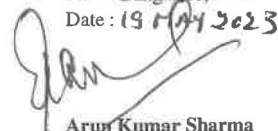 Date : 19 MAY 2023
Arun Kumar Sharma